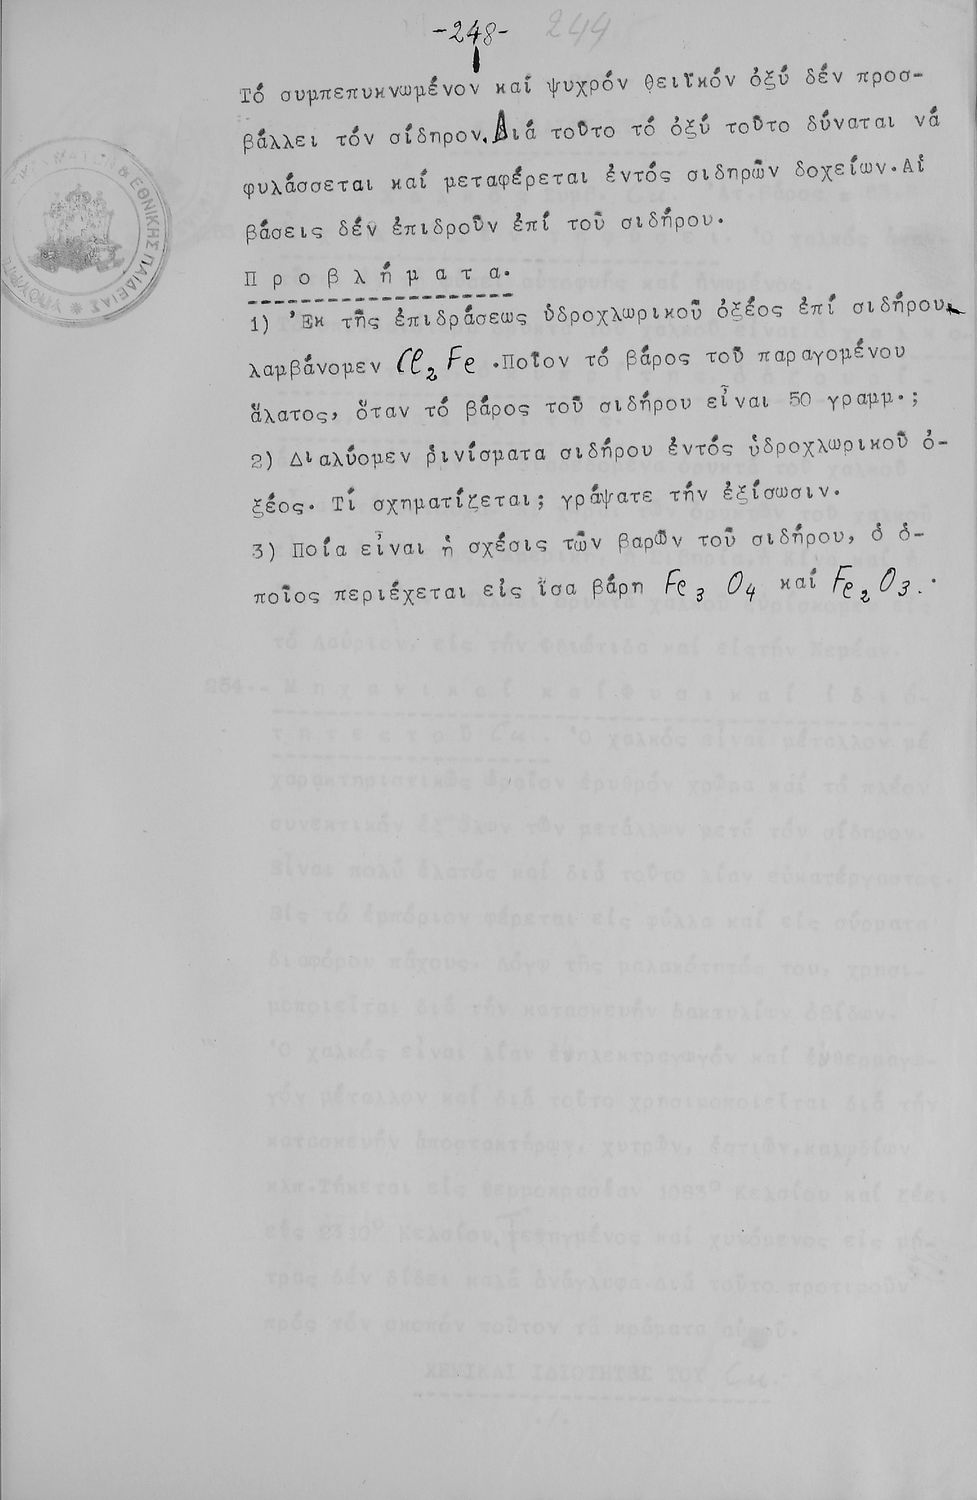 -248- 244
Τό συμπεπυκνωμένον καί ψυχρόν θειϊκόν ὀξύ δέν προσ-
βάλλει τόν σίδηρον. Διά τοῦτο τό ὀξύ τοῦτο δύναται νά
φυλάσσεται καί μεταφέρεται ἐντός σιδηρῶν δοχείων. Αἱ
βάσεις δέν ἐπιδροῦν ἐπί τοῦ σιδήρου.
Π ρ ο β λ ή μ α τ α.
1) Ἐκ τῆς ἐπιδράσεως ὑδροχλωρικοῦ ὀξέος ἐπί σιδήρου
λαμβάνομεν Cl₂ Fe .Ποῖον τό βάρος τοῦ παραγομένου
ἅλατος, ὅταν τό βάρος τοῦ σιδήρου εἶναι 50 γραμμ.;
2) Διαλύομεν ῥινίσματα σιδήρου ἐντός ὑδροχλωρικοῦ ὀ-
ξέος. Τί σχηματίζεται; γράψατε τήν ἐξίσωσιν.
3) Ποία εἶναι ἡ σχέσις τῶν βαρῶν τοῦ σιδήρου, ὁ ὁ-
ποῖος περιέχεται εἰς ἴσα βάρη Fe₃ O₄ καί Fe₂ O₃.
& ΕΘΝΙΚΗΣ ΠΑΙΔΕΙΑΣ